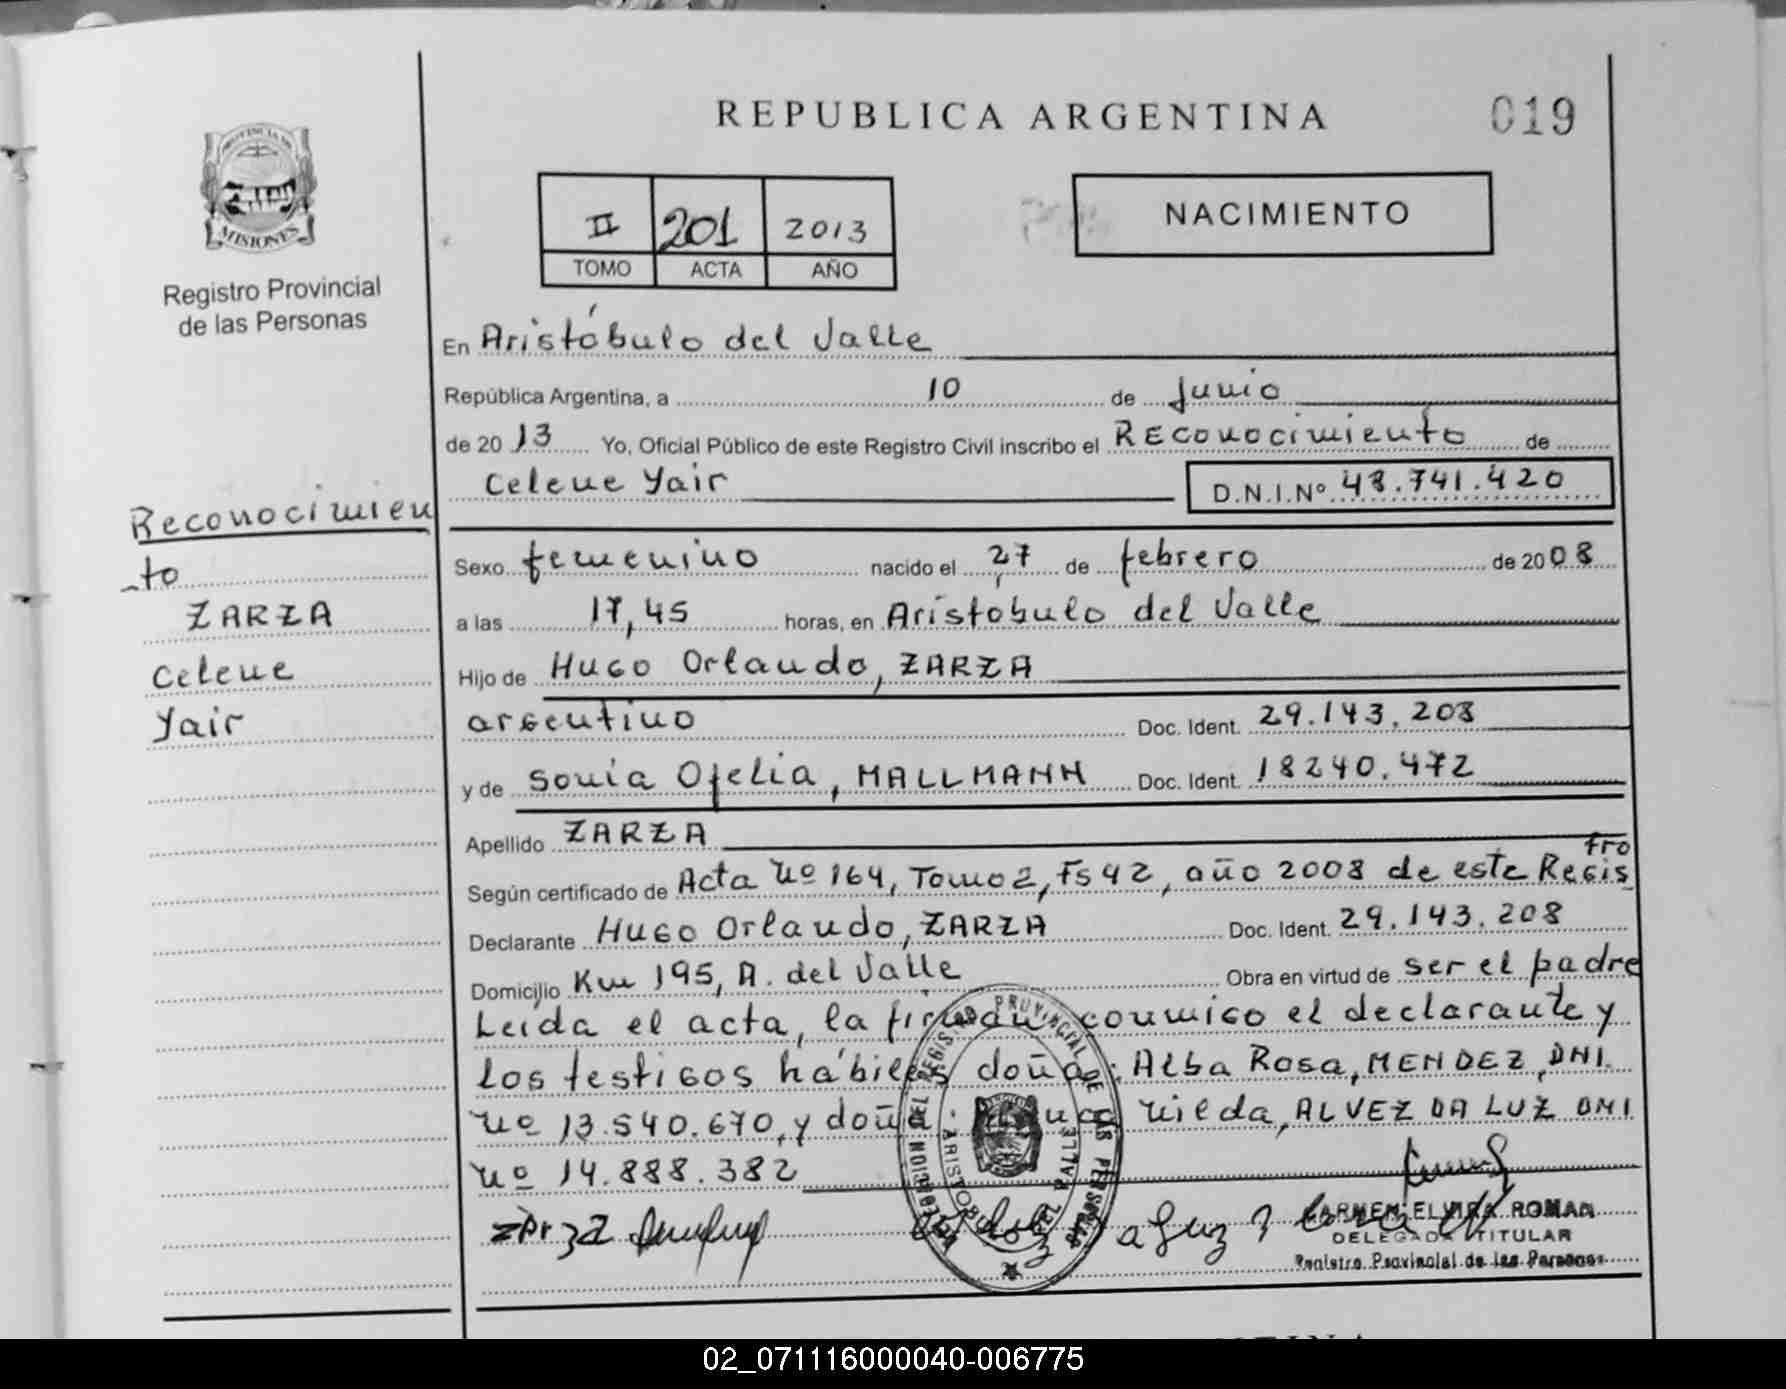 REPUBLICA ARGENTINA
019
PROVINCIA DE
MISIONES
Registro Provincial
de las Personas
II 201 2013
TOMO ACTA AÑO
NACIMIENTO
En Aristóbulo del Valle
República Argentina, a 10 de Junio
de 20 13 Yo, Oficial Público de este Registro Civil inscribo el Reconocimiento de
Celene Yair D.N.I.Nº 48.741.420
Reconocimien
-to
ZARZA
Celene
Yair
Sexo femenino nacido el 27 de febrero de 2008
a las 17,45 horas, en Aristóbulo del Valle
Hijo de Hugo Orlando, ZARZA
argentino Doc. Ident. 29.143.208
y de Sonia Ofelia, MALLMANN Doc. Ident. 18240.472
Apellido ZARZA
tro
Según certificado de Acta Nº 164, Tomo 2, Fs 42, año 2008 de este Regis
Declarante Hugo Orlando, ZARZA Doc. Ident. 29.143.208
Domicilio Km 195, A. del Valle Obra en virtud de ser el padre
Leída el acta, la firman conmigo el declarante y
los testigos hábiles doña: Alba Rosa, MENDEZ, DNI.
Nº 13.540.670, y doña Nilda, ALVEZ DA LUZ DNI
Nº 14.888.382
Zarza
da Luz
CARMEN ELVIRA ROMAN
DELEGADA TITULAR
Registro Provincial de las Personas
DEL REGISTRO PROVINCIAL DE LAS PERSONAS
ARISTOBULO DEL VALLE
02_071116000040-006775